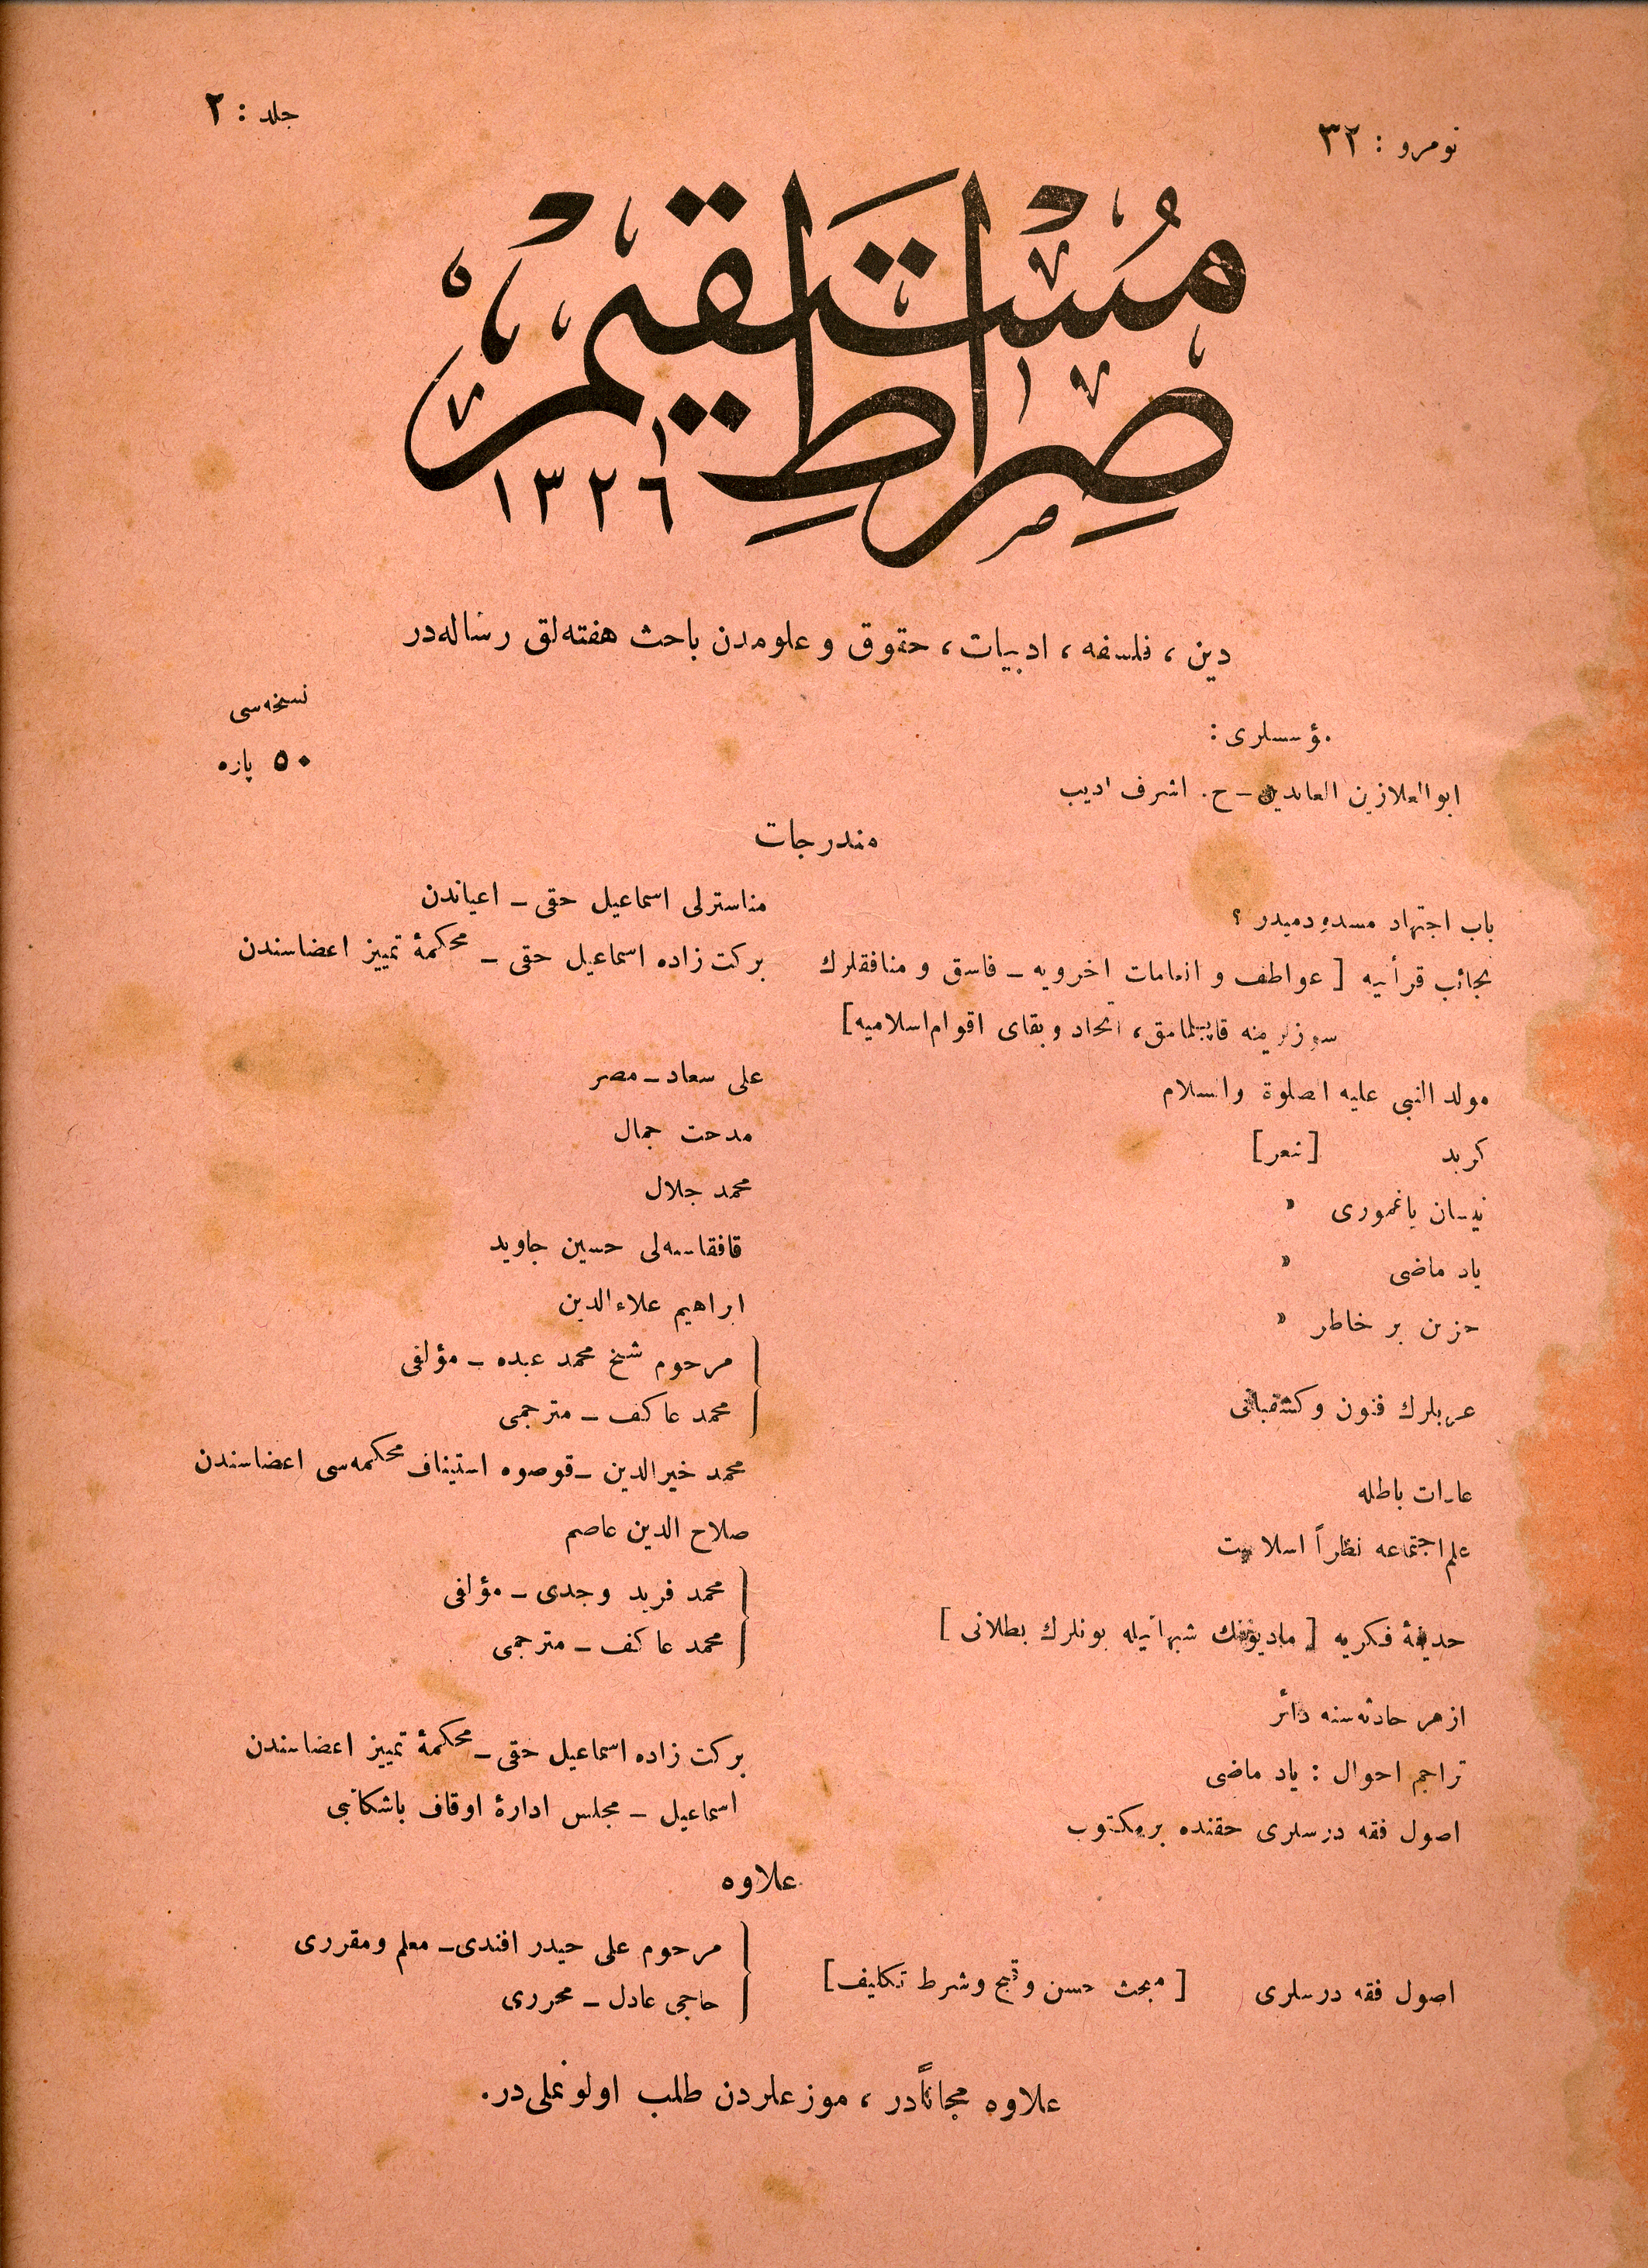 نومرو : ٣٢
جلد : ٢
صِرَاطِ مُسْتَقِيم
١٣٢٦
دين ، فلسفه ، ادبيات ، حقوق و علومدن باحث هفته‌لق رساله‌در
مؤسسلری :
ابوالعلا زين العابدين – ح . اشرف اديب
نسخه‌سی
٥٠ پاره
مندرجات
باب اجتهاد مسدودميدر ؟
مناسترلی اسماعيل حقی – اعياندن
نجائب قرأنيه [ عواطف و انعامات اخرويه – فاسق و منافقلرك
سوزلرينه قاپيلمامق ، اتحاد و بقای اقوام اسلاميه ]
بركت زاده اسماعيل حقی – محكمۀ تمييز اعضاسندن
مولد النبی عليه الصلوة والسلام
علی سعاد – مصر
كريد [ شعر ]
مدحت جمال
نيسان ياغموری »
محمد جلال
ياد ماضی »
قافقاسه‌لی حسين جاويد
حزين بر خاطر »
ابراهيم علاءالدين
عربلرك فنون و كشفياتی
مرحوم شيخ محمد عبده – مؤلفی
محمد عاكف – مترجمی
عادات باطله
محمد خيرالدين – قوصوه استيناف محكمه‌سی اعضاسندن
علم اجتماعه نظراً اسلاميت
صلاح الدين عاصم
حديقۀ فكريه [ ماديونك شبهاتيله بونلرك بطلانی ]
محمد فريد وجدی – مؤلفی
محمد عاكف – مترجمی
ازهر حادثه‌سنه دائر
تراجم احوال : ياد ماضی
بركت زاده اسماعيل حقی – محكمۀ تمييز اعضاسندن
اصول فقه درسلری حقنده بر مكتوب
اسماعيل – مجلس ادارۀ اوقاف باشكاتبی
علاوه
اصول فقه درسلری [ مبحث حسن و قبح و شرط تكليف ]
مرحوم علی حيدر افندی – معلم و مقرری
حاجی عادل – محرری
علاوه مجاناًدر ، موزعلردن طلب اولونملی‌در .